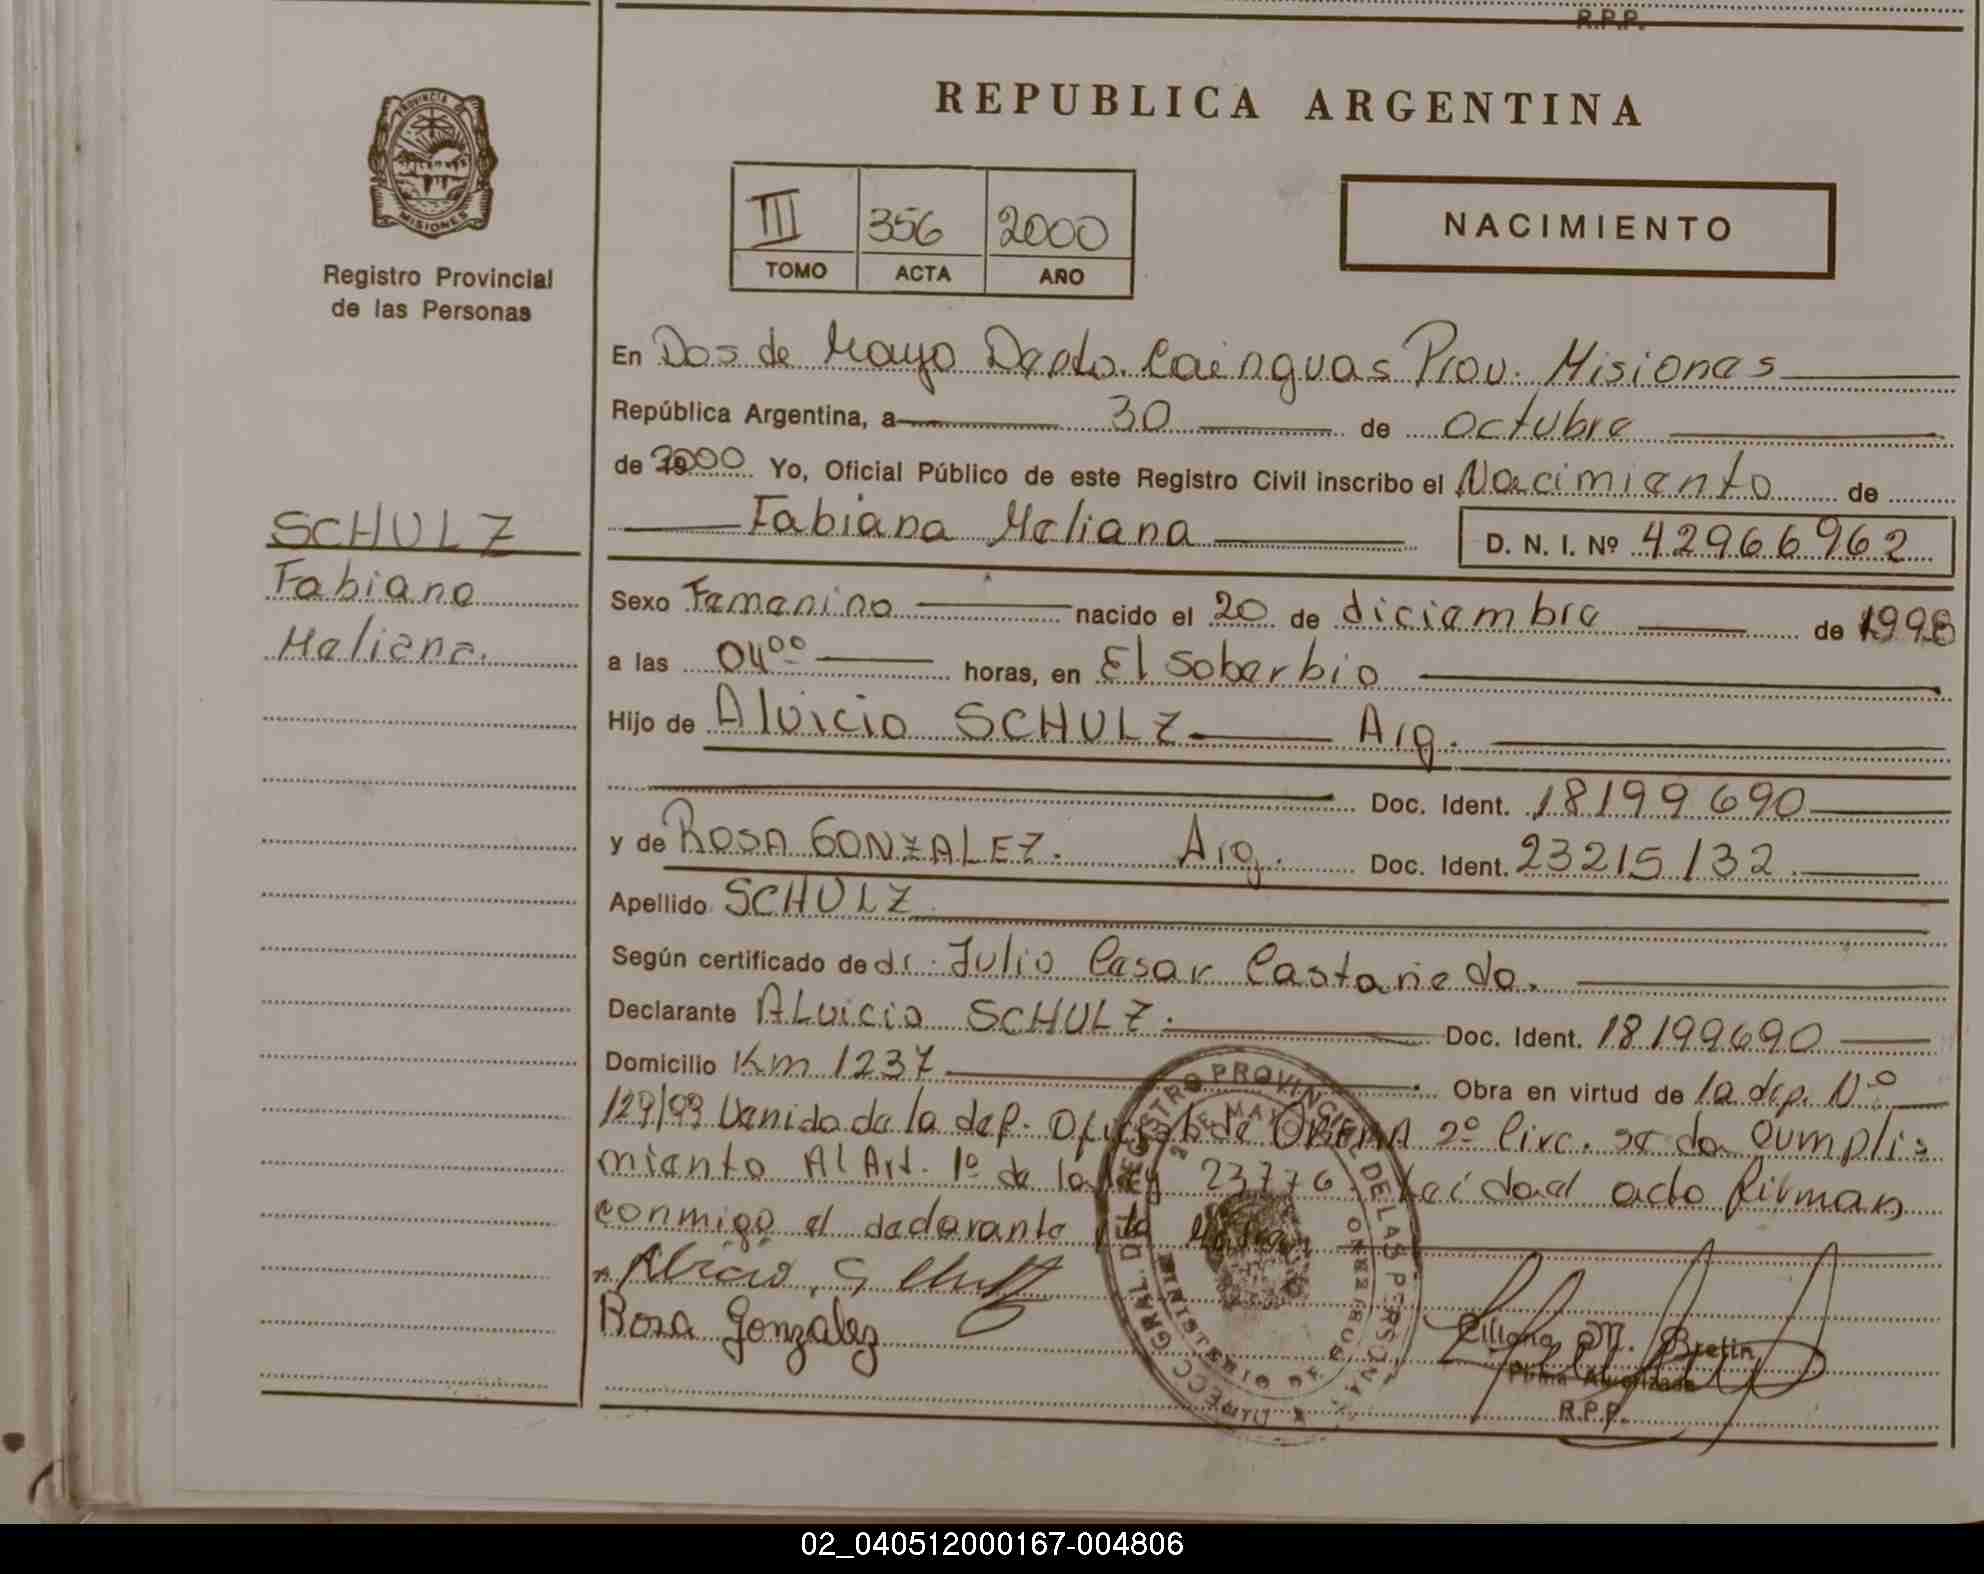 R.P.P.
PROVINCIA DE
MISIONES
Registro Provincial
de las Personas
REPUBLICA ARGENTINA
III 356 2000
TOMO ACTA AÑO
NACIMIENTO
En Dos de Mayo Depto. Cainguas Prov. Misiones
República Argentina, a 30 de octubre
de 2000 Yo, Oficial Público de este Registro Civil inscribo el Nacimiento de
Fabiana Meliana D. N. I. Nº 42966962
SCHULZ
Fabiana
Meliana.
Sexo Femenino nacido el 20 de diciembre de 1998
a las 04⁰⁰ horas, en El Soberbio
Hijo de Alvicio SCHULZ Arg.
Doc. Ident. 18199690
y de ROSA GONZALEZ. Arg. Doc. Ident. 23215132
Apellido SCHULZ
Según certificado de dr. Julio Cesar Castañeda.
Declarante ALvicio SCHULZ. Doc. Ident. 18199690
Domicilio Km 1237 Obra en virtud de la dep. Nº
129/99 Venida de la dep. de OBERA 2º Circ. se da cumpli
miento Al Art. 1º de la Ley 23776 Leida el acto firman
conmigo el declarante y la
Rosa Gonzalez
DIRECC. GRAL. DE REGISTRO PROVINCIAL DE LAS PERSONAS
2 DE MAYO
MINISTERIO DE GOBIERNO
Liliana M. Bretin
Firma Autorizada
R.P.P.
02_040512000167-004806